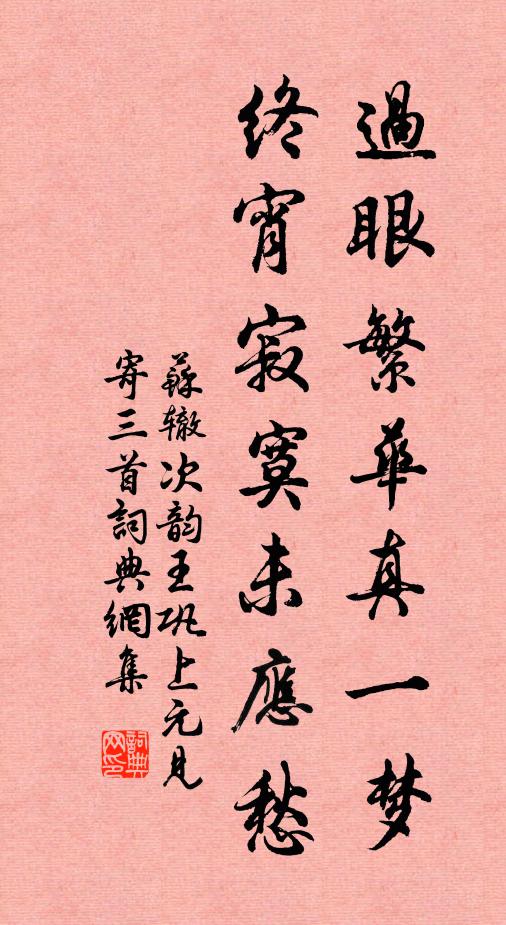 過眼繁華真一梦
終宵寂寞未應愁
蘇辙次韵王巩上元見
寄三首詞典網集
詞典网印